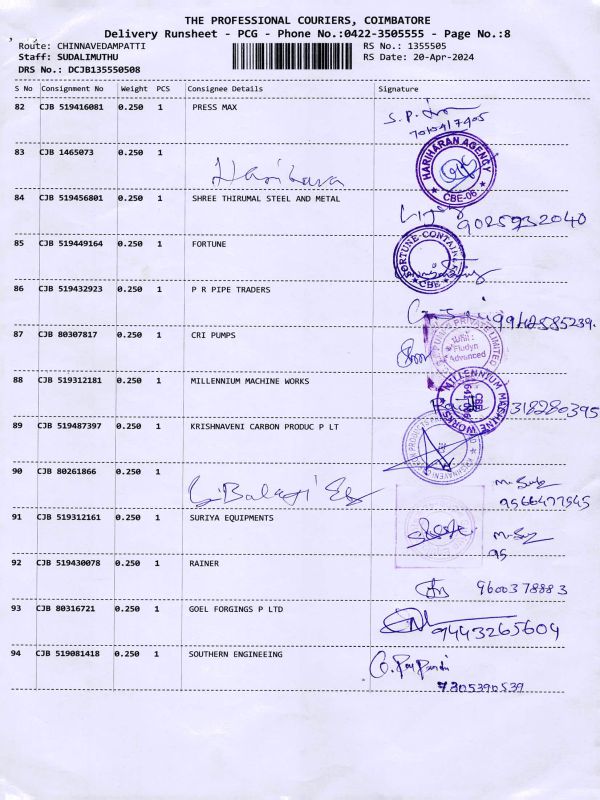 THE PROFESSIONAL COURIERS, COIMBATORE
Delivery Runsheet - PCG - Phone No.:0422-3505555 - Page No.:8
Route: CHINNAVEDAMPATTI RS No.: 1355505
Staff: SUDALIMUTHU RS Date: 20-Apr-2024
DRS No.: DCJB135550508
S No Consignment No Weight PCS Consignee Details Signature
82 CJB 519416081 0.250 1 PRESS MAX
S.P.
83 CJB 1465073 0.250 1
HARIHARAN AGENCY
CBE-06
84 CJB 519456801 0.250 1 SHREE THIRUMAL STEEL AND METAL
9025932040
85 CJB 519449164 0.250 1 FORTUNE
FORTUNE
CBE
86 CJB 519432923 0.250 1 P R PIPE TRADERS
9942585239.
87 CJB 80307817 0.250 1 CRI PUMPS
PRIVATE LIMITED
Fludyn
Advanced
88 CJB 519312181 0.250 1 MILLENNIUM MACHINE WORKS
MILLENNIUM MACHINE WORKS
318280395
89 CJB 519487397 0.250 1 KRISHNAVENI CARBON PRODUC P LT
90 CJB 80261866 0.250 1
G. Balaji
9566477545
91 CJB 519312161 0.250 1 SURIYA EQUIPMENTS
95
92 CJB 519430078 0.250 1 RAINER
9600378883
93 CJB 80316721 0.250 1 GOEL FORGINGS P LTD
9443265604
94 CJB 519081418 0.250 1 SOUTHERN ENGINEEING
7305390539